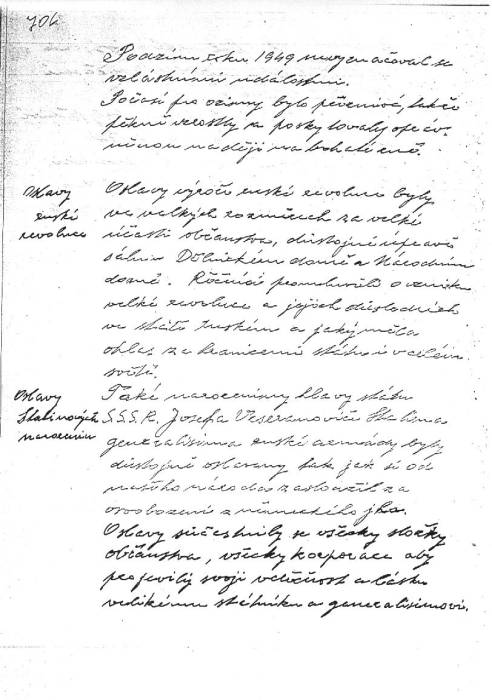 704
Podzim roku 1949 nevyznačoval se
zvláštními událostmi.
Počasí pro ozimy bylo příznivé, takže
pěkně vzrostly a poskytovaly opráv-
něnou naději na bohaté žně.
Oslavy
ruské
revoluce
Oslavy výročí ruské revoluce byly
ve velkých rozměrech za velké
účasti občanstva, důstojné úpravě
sálu v Dělnickém domě a Národním
domě. Řečníci promluvili o vzniku
velké revoluce a jejích důsledcích
ve státě ruském a jaký měla
ohlas za hranicemi státu i v celém
světě.
Oslavy
Stalinových
narozenin
Také narozeniny hlavy státu
S.S.S.R. Josefa Vissarionoviče Stalina
generalisima ruské armády byly
důstojně oslaveny tak jak si od
našeho národa zasloužil za
osvobození z německého jha.
Oslavy súčastnily se všecky složky
občanstva, všecky korporace aby
projevily svoji vděčnost a lásku
velikému státníku a generalisimovi.